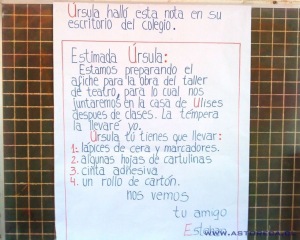 Úrsula halló esta nota en su
escritorio del colegio.
Estimada Úrsula:
Estamos preparando el
afiche para la obra del taller
de teatro, para lo cual nos
juntaremos en la casa de Ulises
despues de clases. La témpera
la llevaré yo.
Úrsula tú tienes que llevar:
1. lápices de cera y marcadores.
2. algunas hojas de cartulinas
3. cinta adhesiva
4. un rollo de cartón.
nos vemos
tu amigo
Esteban